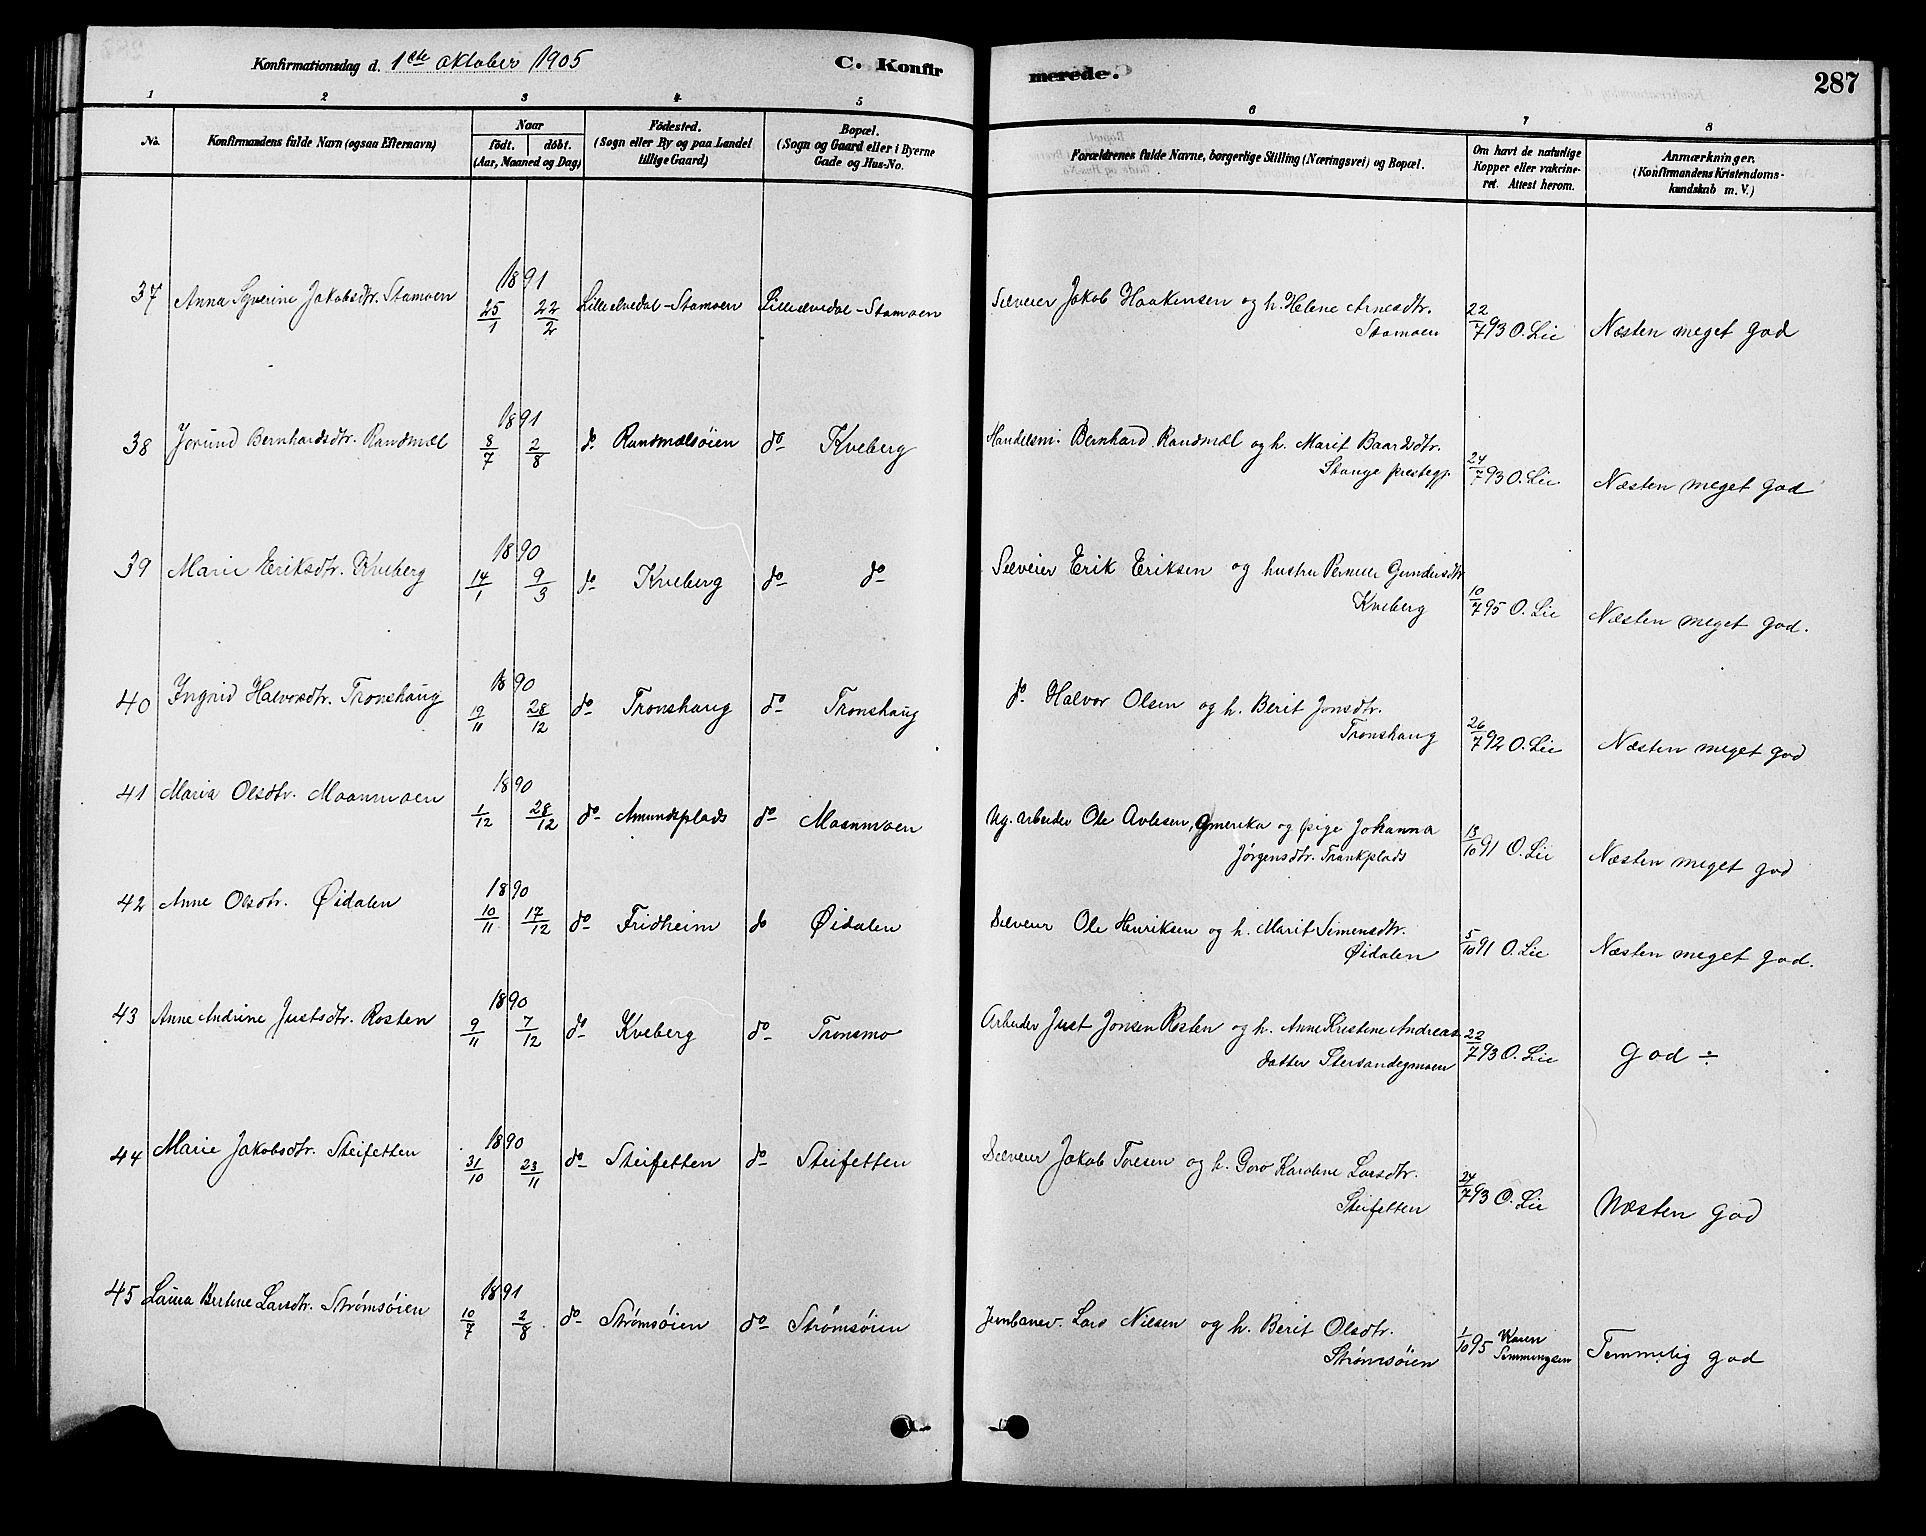 Konfirmationsdag d. 1ste oktober 1905 C. Konfirmerede. 287
1 2 3 4 5 6 7 8
No. Konfirmandens fulde Navn (ogsaa Efternavn) Naar født. døbt. (Aar, Maaned og Dag) Fødested. (Sogn eller By og paa Landet tillige Gaard) Bopæl. (Sogn og Gaard eller i Byerne Gade og Hus-No. Forældrenes fulde Navne, borgerlige Stilling (Næringsvei) og Bopæl. Om havt de naturlige Kopper eller vakcineret. Attest herom. Anmærkninger. (Konfirmandens Kristendomskundskab m. V.)
1891
37 Anna Syverine Jakobsdtr. Stamoen 25/1 22/2 Lilleelvedal-Stamoen Lilleelvedal-Stamoen Selveier Jakob Haakensen og h. Helene Arnesdtr. Stamoen 22/7 93 O. Lie Næsten meget god
1891
38 Jorund Bernhardsdtr. Randmæl 8/7 2/8 do Randmælsøien do Kveberg Handelsm. Bernhard Randmæl og h. Marit Baardsdtr. Stange prestegj. 24/7 93 O. Lie Næsten meget god
1890
39 Marie Eriksdtr. Kveberg 14/1 9/3 do Kveberg do do Selveier Erik Eriksen og hustru Pernille Gundersdtr Kveberg 10/7 95 O. Lie Næsten meget god.
1890
40 Ingrid Halvorsdtr. Tronshaug 19/11 28/12 do Tronshaug do Tronshaug do Halvor Olsen og h. Berit Jonsdtr. Tronshaug 26/7 92 O. Lie Næsten meget god
1890
41 Maria Olsdtr. Moanmoen 1/12 28/12 do Amundsplads do Moanmoen Ug. Arbeider Ole Avlesen, Amerika og pige Johanna Jørgensdtr. Trankplads 13/10 91 O. Lie Næsten meget god
1890
42 Anne Olsdtr. Øidalen 10/11 17/12 do Fridheim do Øidalen Selveier Ole Henriksen og h. Marit Simensdtr. Øidalen 5/10 91 O. Lie Næsten meget god.
1890
43 Anne Andrine Justsdtr. Rosten 9/11 7/12 do Kveberg do Tronsmo Arbeider Just Jonsen Rosten og h. Anne Kristine Andreasdatter Stersandegmoen 22/7 93 O. Lie God ÷
1890
44 Marie Jakobsdtr. Steifetten 31/10 23/11 do Steifetten do Steifetten Selveier Jakob Toresen og h. Goro Karoline Larsdtr. Steifetten 24/7 93 O. Lie Næsten god
1891
45 Laura Bertine Larsdtr. Strømsøien 10/7 2/8 do Strømsøien do Strømsøien Jernbanev. Lars Nilsen og h. Berit Olsdtr. Strømsøien 1/10 95 Karen Simmingsen Temmelig god